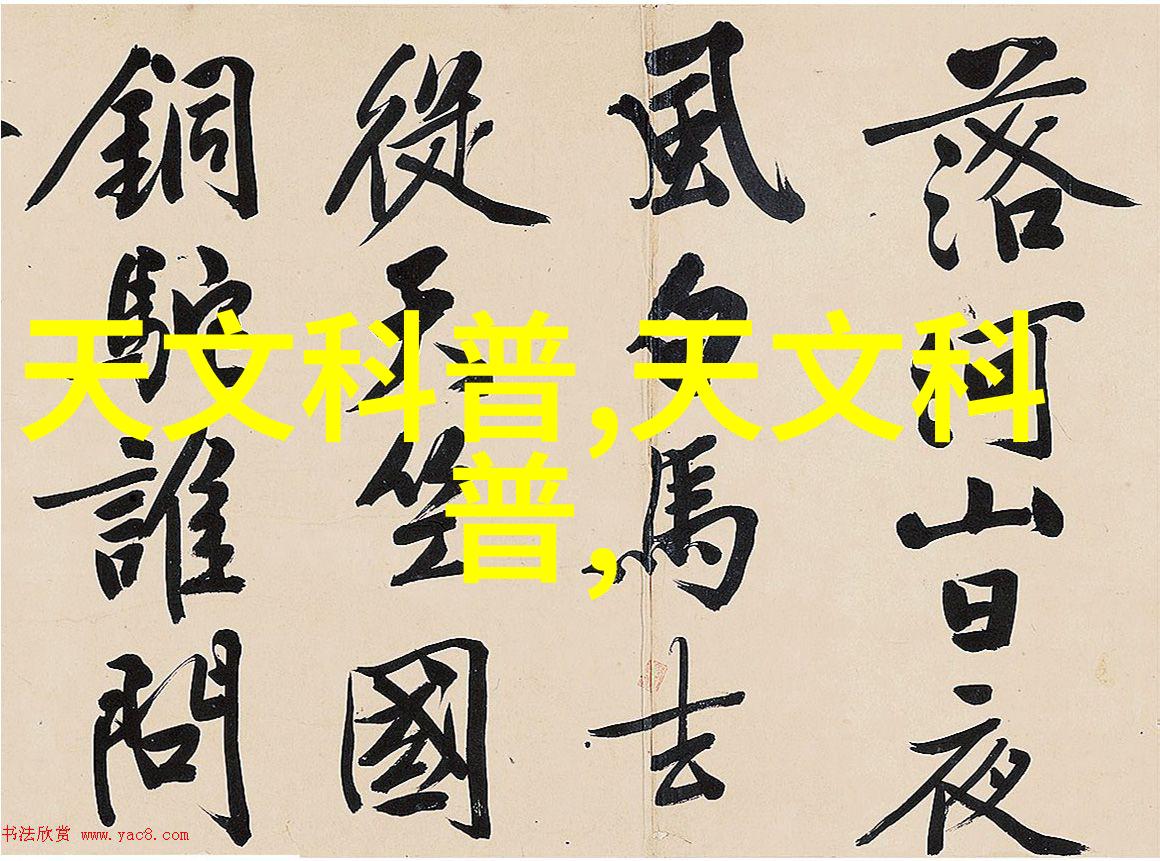 落河山日夜
風白馬去
從天竺國
銅駝誰問
天文科普,天文科
普,
书法欣赏 www.yac8.com